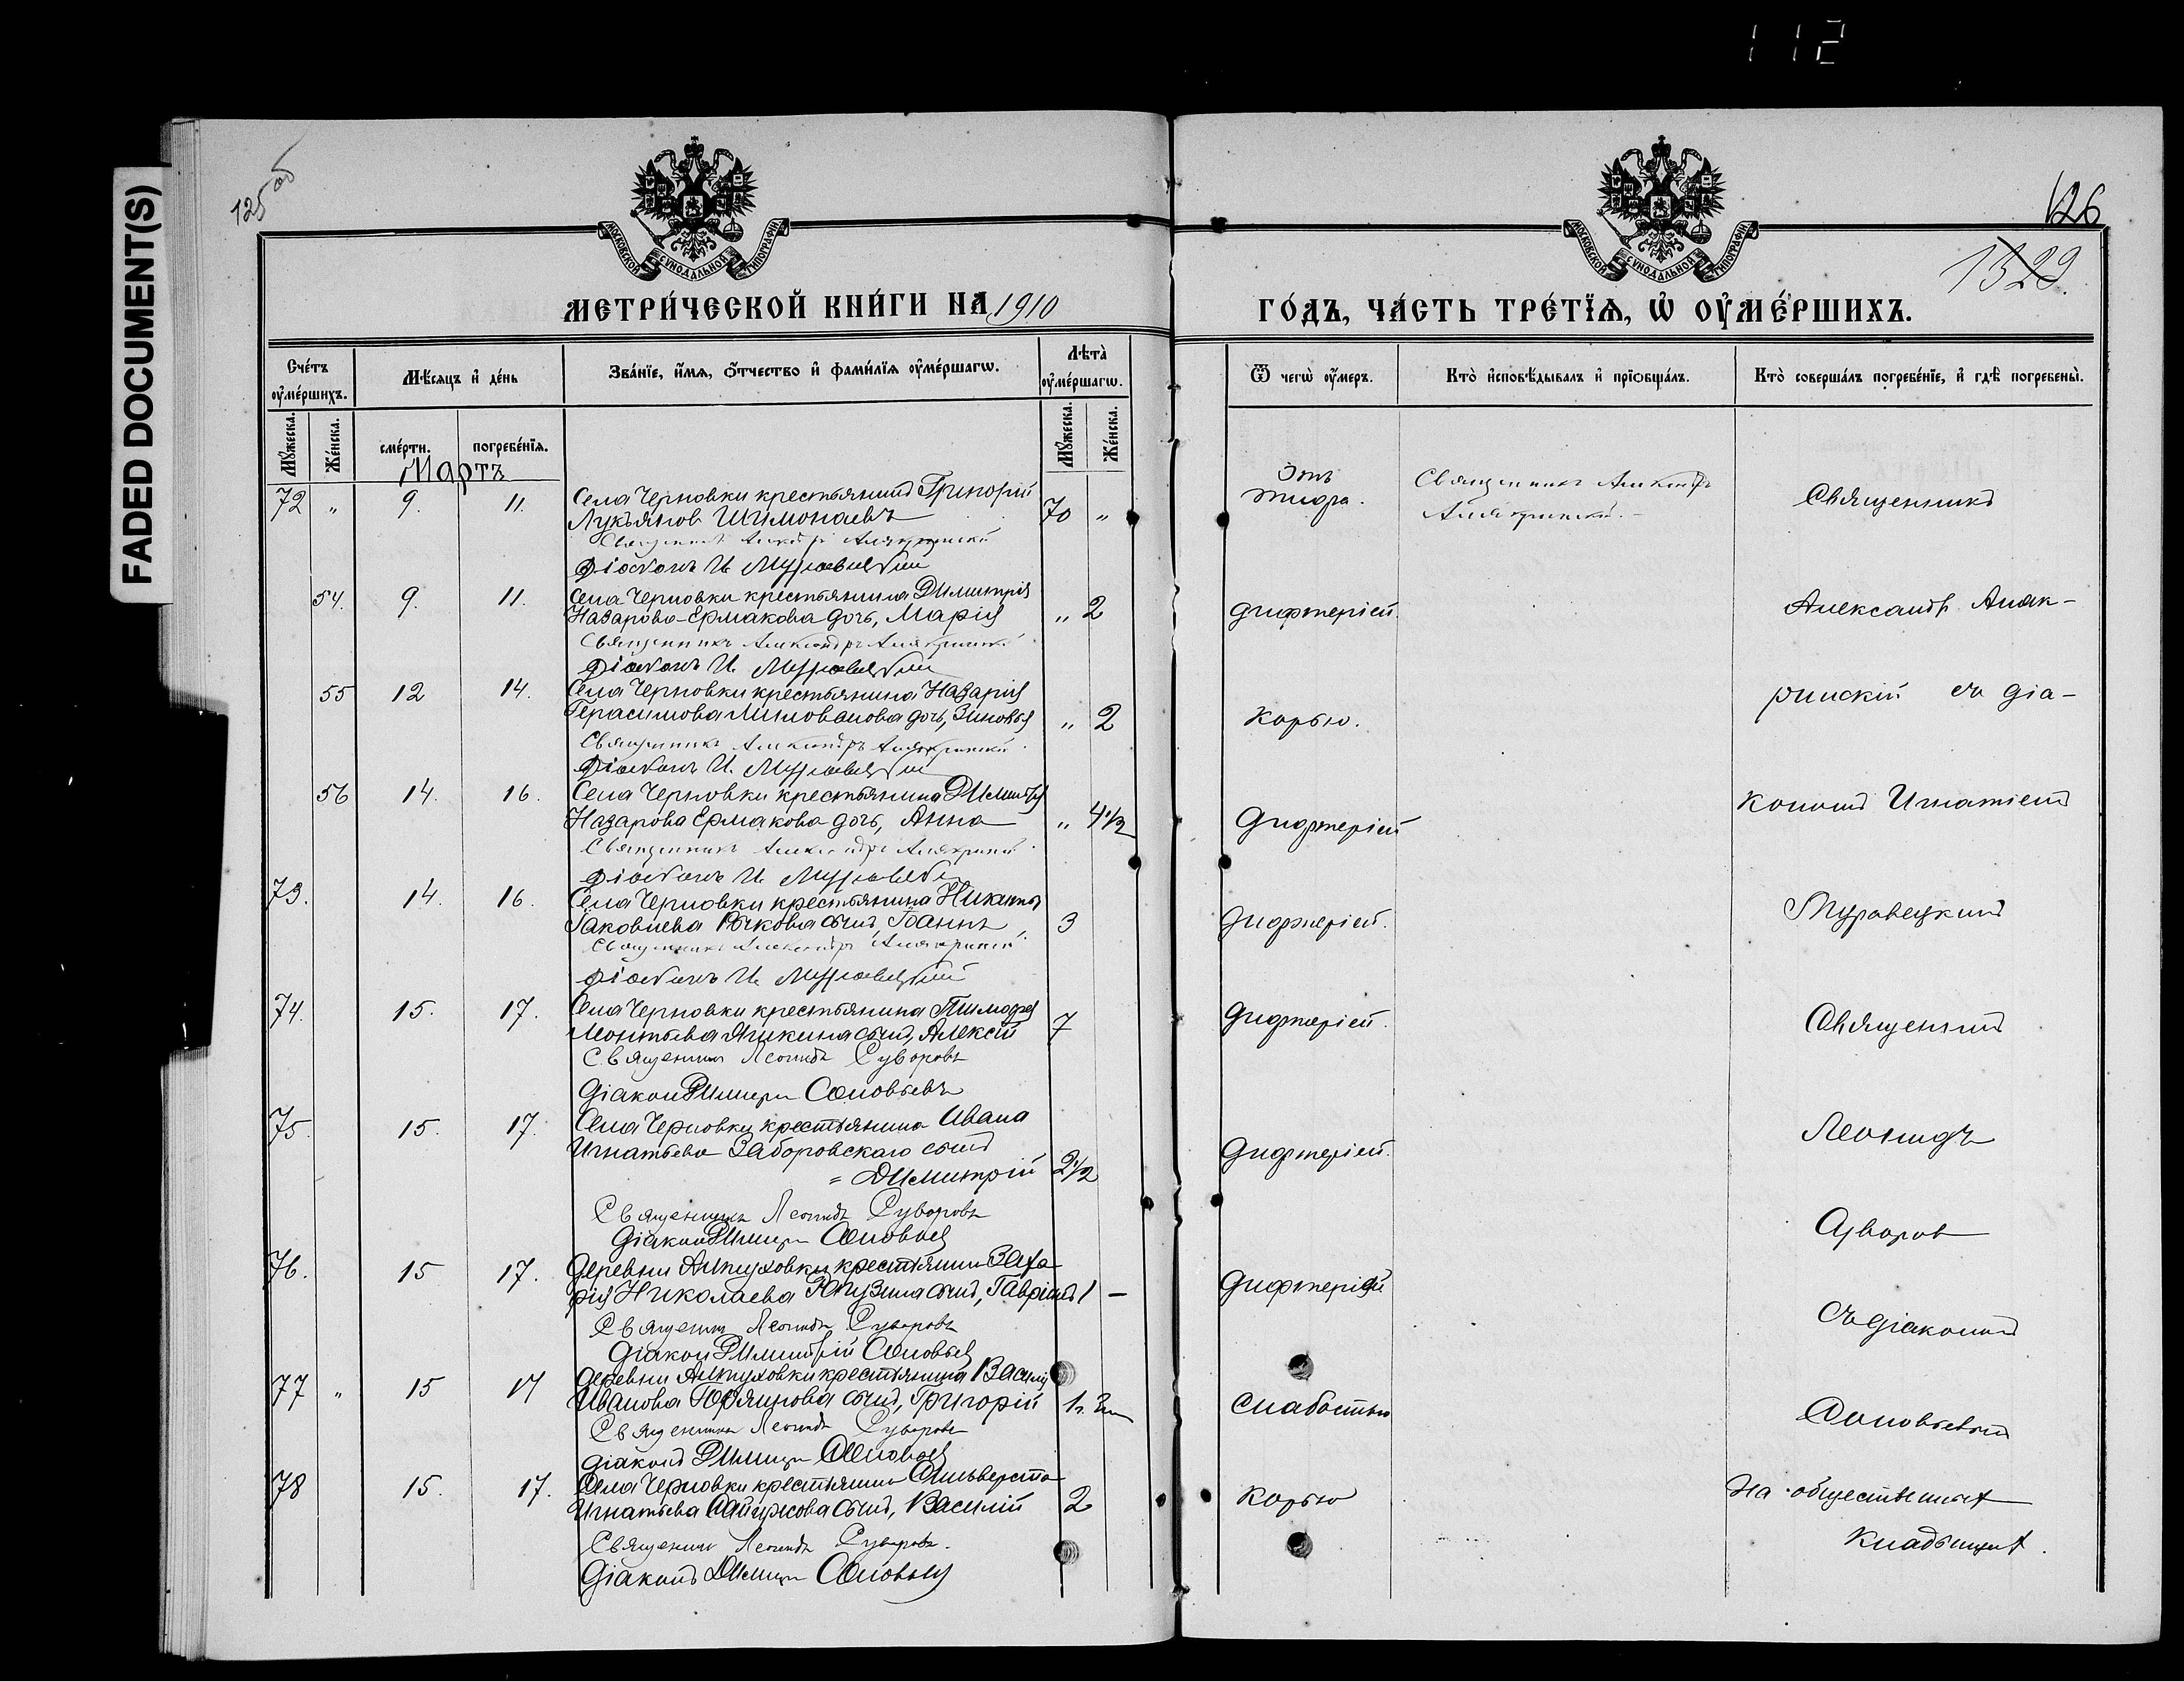 112
FADED DOCUMENT(S)
125 об
126
1329.
МОСКОВСКОЙ СѴНОДАЛЬНОЙ ТИПОГРАФІИ
МОСКОВСКОЙ СѴНОДАЛЬНОЙ ТИПОГРАФІИ
МЕТРИ́ЧЕСКОЙ КНИ́ГИ НА 1910
ГО́ДЪ, ЧА́СТЬ ТРЕ́ТЇѦ, Ѡ҆ ОУ҆МЕ́РШИХЪ.
Сче́тъ оу҆ме́ршихъ.
Мѣ́сяцъ и҆ де́нь
Зва́нїе, и҆́мя, ѻ҆́тчество и҆ фами́лїя оу҆ме́ршагѡ.
Лѣта̀ оу҆ме́ршагѡ.
Ѿ чегѡ̀ оу҆́меръ.
Кто̀ и҆сповѣ́дывалъ и҆ прїѻбща́лъ.
Кто̀ соверша́лъ погребе́нїе, и҆ гдѣ̀ погребены̀.
Мꙋ́жеска.
Же́нска.
сме́рти.
погребе́нїя.
Мꙋ́жеска.
Же́нска.
Мартъ
72 " 9. 11. Села Черновки крестьянинъ Григорій
Лукьянов 70 "
Священникъ Александръ Алякринскій
Діаконъ И. Муравецкій
Отъ
тифа.
Священникъ Александръ
Алякринскій.
Священникъ
54. 9. 11. Села Черновки крестьянина Димитрія
Назарова Ермакова дочь, Марія " 2
Священникъ Александръ Алякринскій
Діаконъ И. Муравецкій
дифтеріей.
Александръ Аляк-
55 12 14. Села Черновки крестьянина Назарія
Герасимова Милованова дочь, Зиновья " 2
Священникъ Александръ Алякринскій
Діаконъ И. Муравецкій
корью.
ринскій съ діа-
56 14. 16. Села Черновки крестьянина Димитрія
Назарова Ермакова дочь, Анна " 4½
Священникъ Александръ Алякринскій
Діаконъ И. Муравецкій
дифтеріей
кономъ Игнатіемъ
73. 14. 16. Села Черновки крестьянина Никиты
Іаковлева сынъ, Іоаннъ 3
Священникъ Александръ Алякринскій
Діаконъ И. Муравецкій
дифтеріей.
Муравецкимъ
74. 15. 17. Села Черновки крестьянина Тимофея
Леонтьева сынъ, Алексій 7
Священникъ Леонидъ Суворовъ
Діаконъ Димитрій Соловьевъ
дифтеріей.
Священникъ
75. 15. 17. Села Черновки крестьянина Ивана
Игнатьева Заборовскаго сынъ
= Димитрій 2½
Священникъ Леонидъ Суворовъ
Діаконъ Димитрій Соловьев
дифтеріей.
Леонидъ
76. 15 17. Деревни крестьянина Заха-
рія Николаева сынъ, Гавріилъ 1 —
Священникъ Леонидъ Суворовъ
Діаконъ Димитрій Соловьев
дифтеріей
Суворов
съ діакономъ
77 " 15 17 Деревни крестьянина Василія
Иванова сынъ, Григорій
Священникъ Леонидъ Суворовъ
Діаконъ Димитрій Соловьев
слабостью
Соловьевымъ
78 15. 17. Села Черновки крестьянина Сильверста
Игнатьева сынъ, Василій 2
Священникъ Леонидъ Суворовъ.
Діаконъ Димитрій Соловьев
корью
на общественномъ
кладбищѣ.